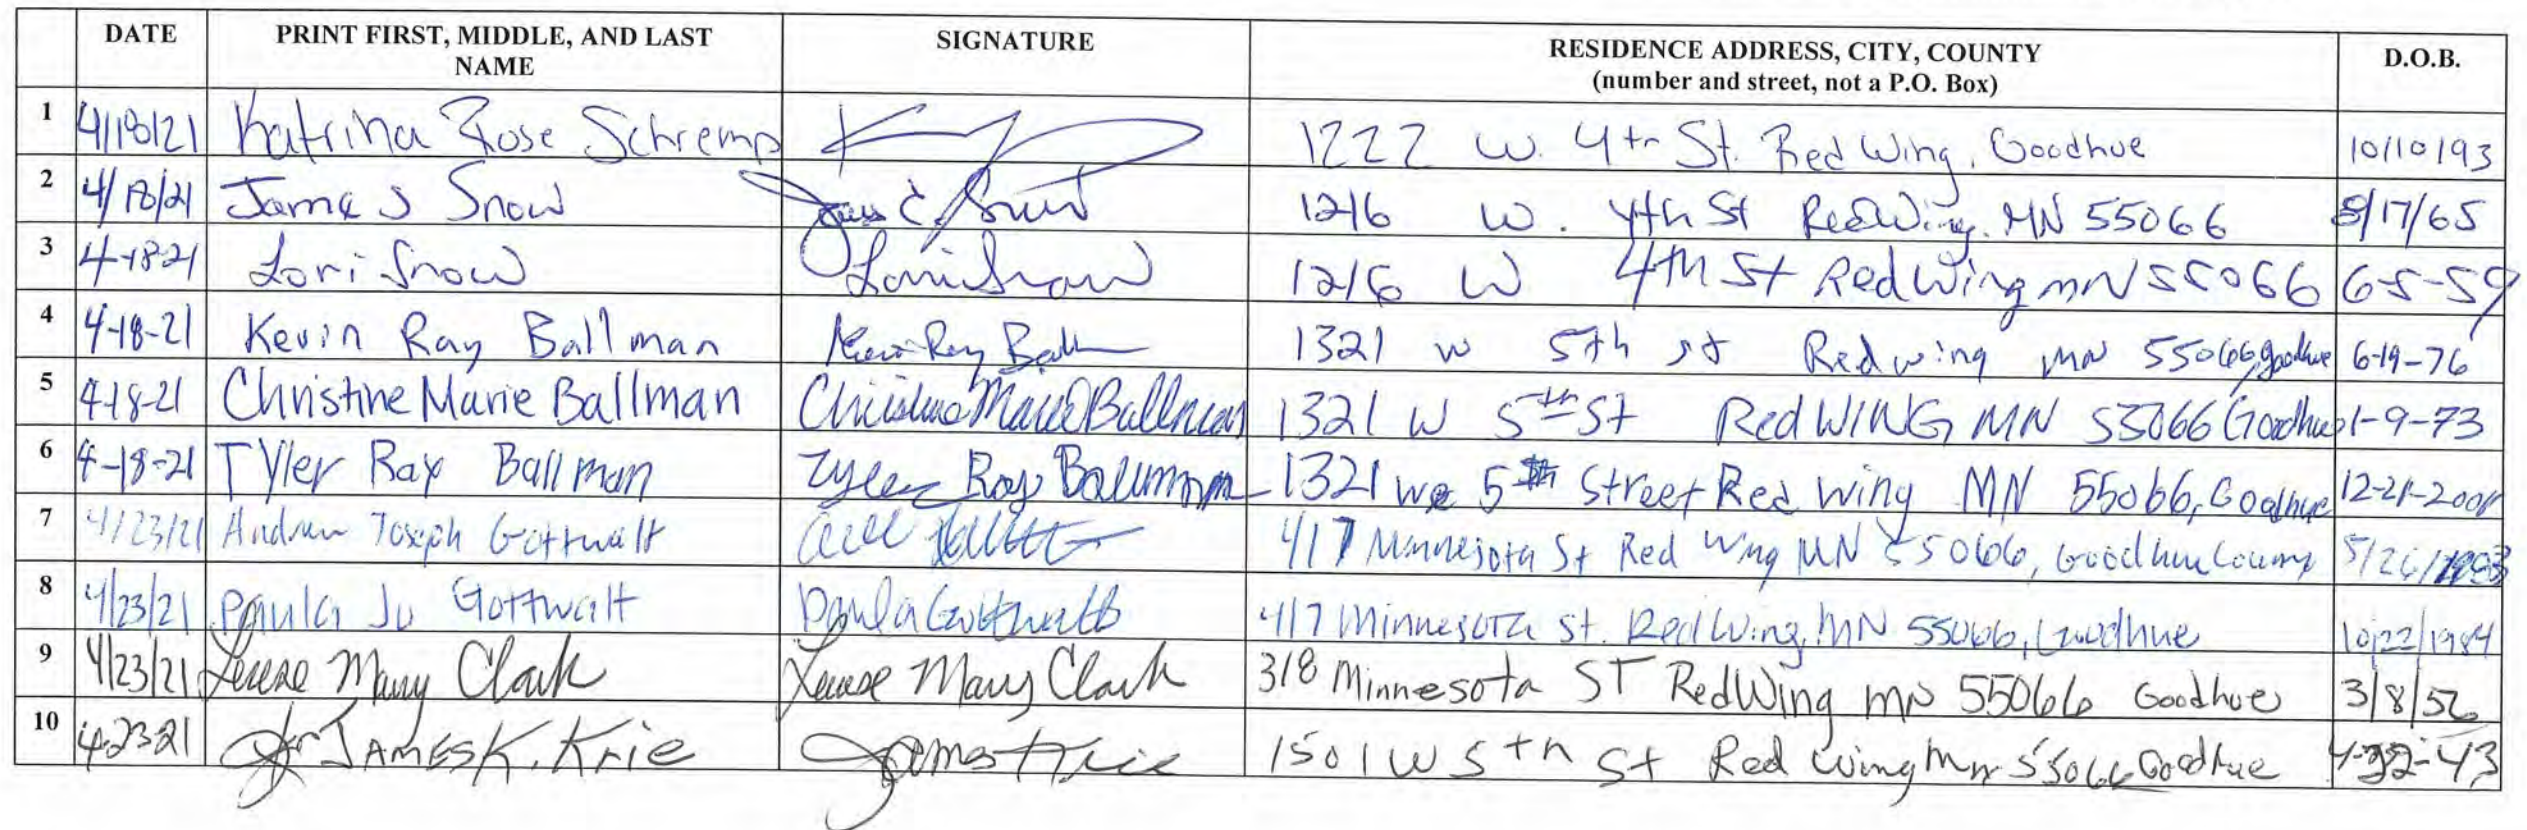 DATE PRINT FIRST, MIDDLE, AND LAST NAME SIGNATURE RESIDENCE ADDRESS, CITY, COUNTY (number and street, not a P.O. Box) D.O.B.
1 4/18/21 Katrina Rose Schremp 1222 W. 4th St. Red Wing, Goodhue 10/10/93
2 4/18/21 James Snow 1216 W. 4th St Red Wing, MN 55066 5/17/65
3 4-18-21 Lori Snow Lori Snow 1216 W 4th St Red Wing mN 55066 6-5-59
4 4-18-21 Kevin Ray Ballman Kevin Ray 1321 w 5th st Red wing MN 55066, goodhue 6-19-76
5 4-18-21 Christine Marie Ballman Christine Marie Ballman 1321 W 5th St Red WING MN 55066 Goodhue 1-9-73
6 4-18-21 Tyler Ray Ballman Tyler Ray Ballman 1321 we 5th Street Red Wing MN 55066, Goodhue
7 4/23/21 Andrew Joseph Gottwalt 417 Minnesota St Red Wing MN 55066, Goodhue County
8 4/23/21 Paula Jo Gottwalt Paula Gottwalt 417 Minnesota St. Red Wing, MN 55066, Goodhue 10/22/1984
9 4/23/21 Mary Clark Mary Clark 318 Minnesota ST Red Wing MN 55066 Goodhue
10 4-23-21 JAMES K. Krie James Krie 1501 W 5th St Red Wing Mn 55066 Goodhue